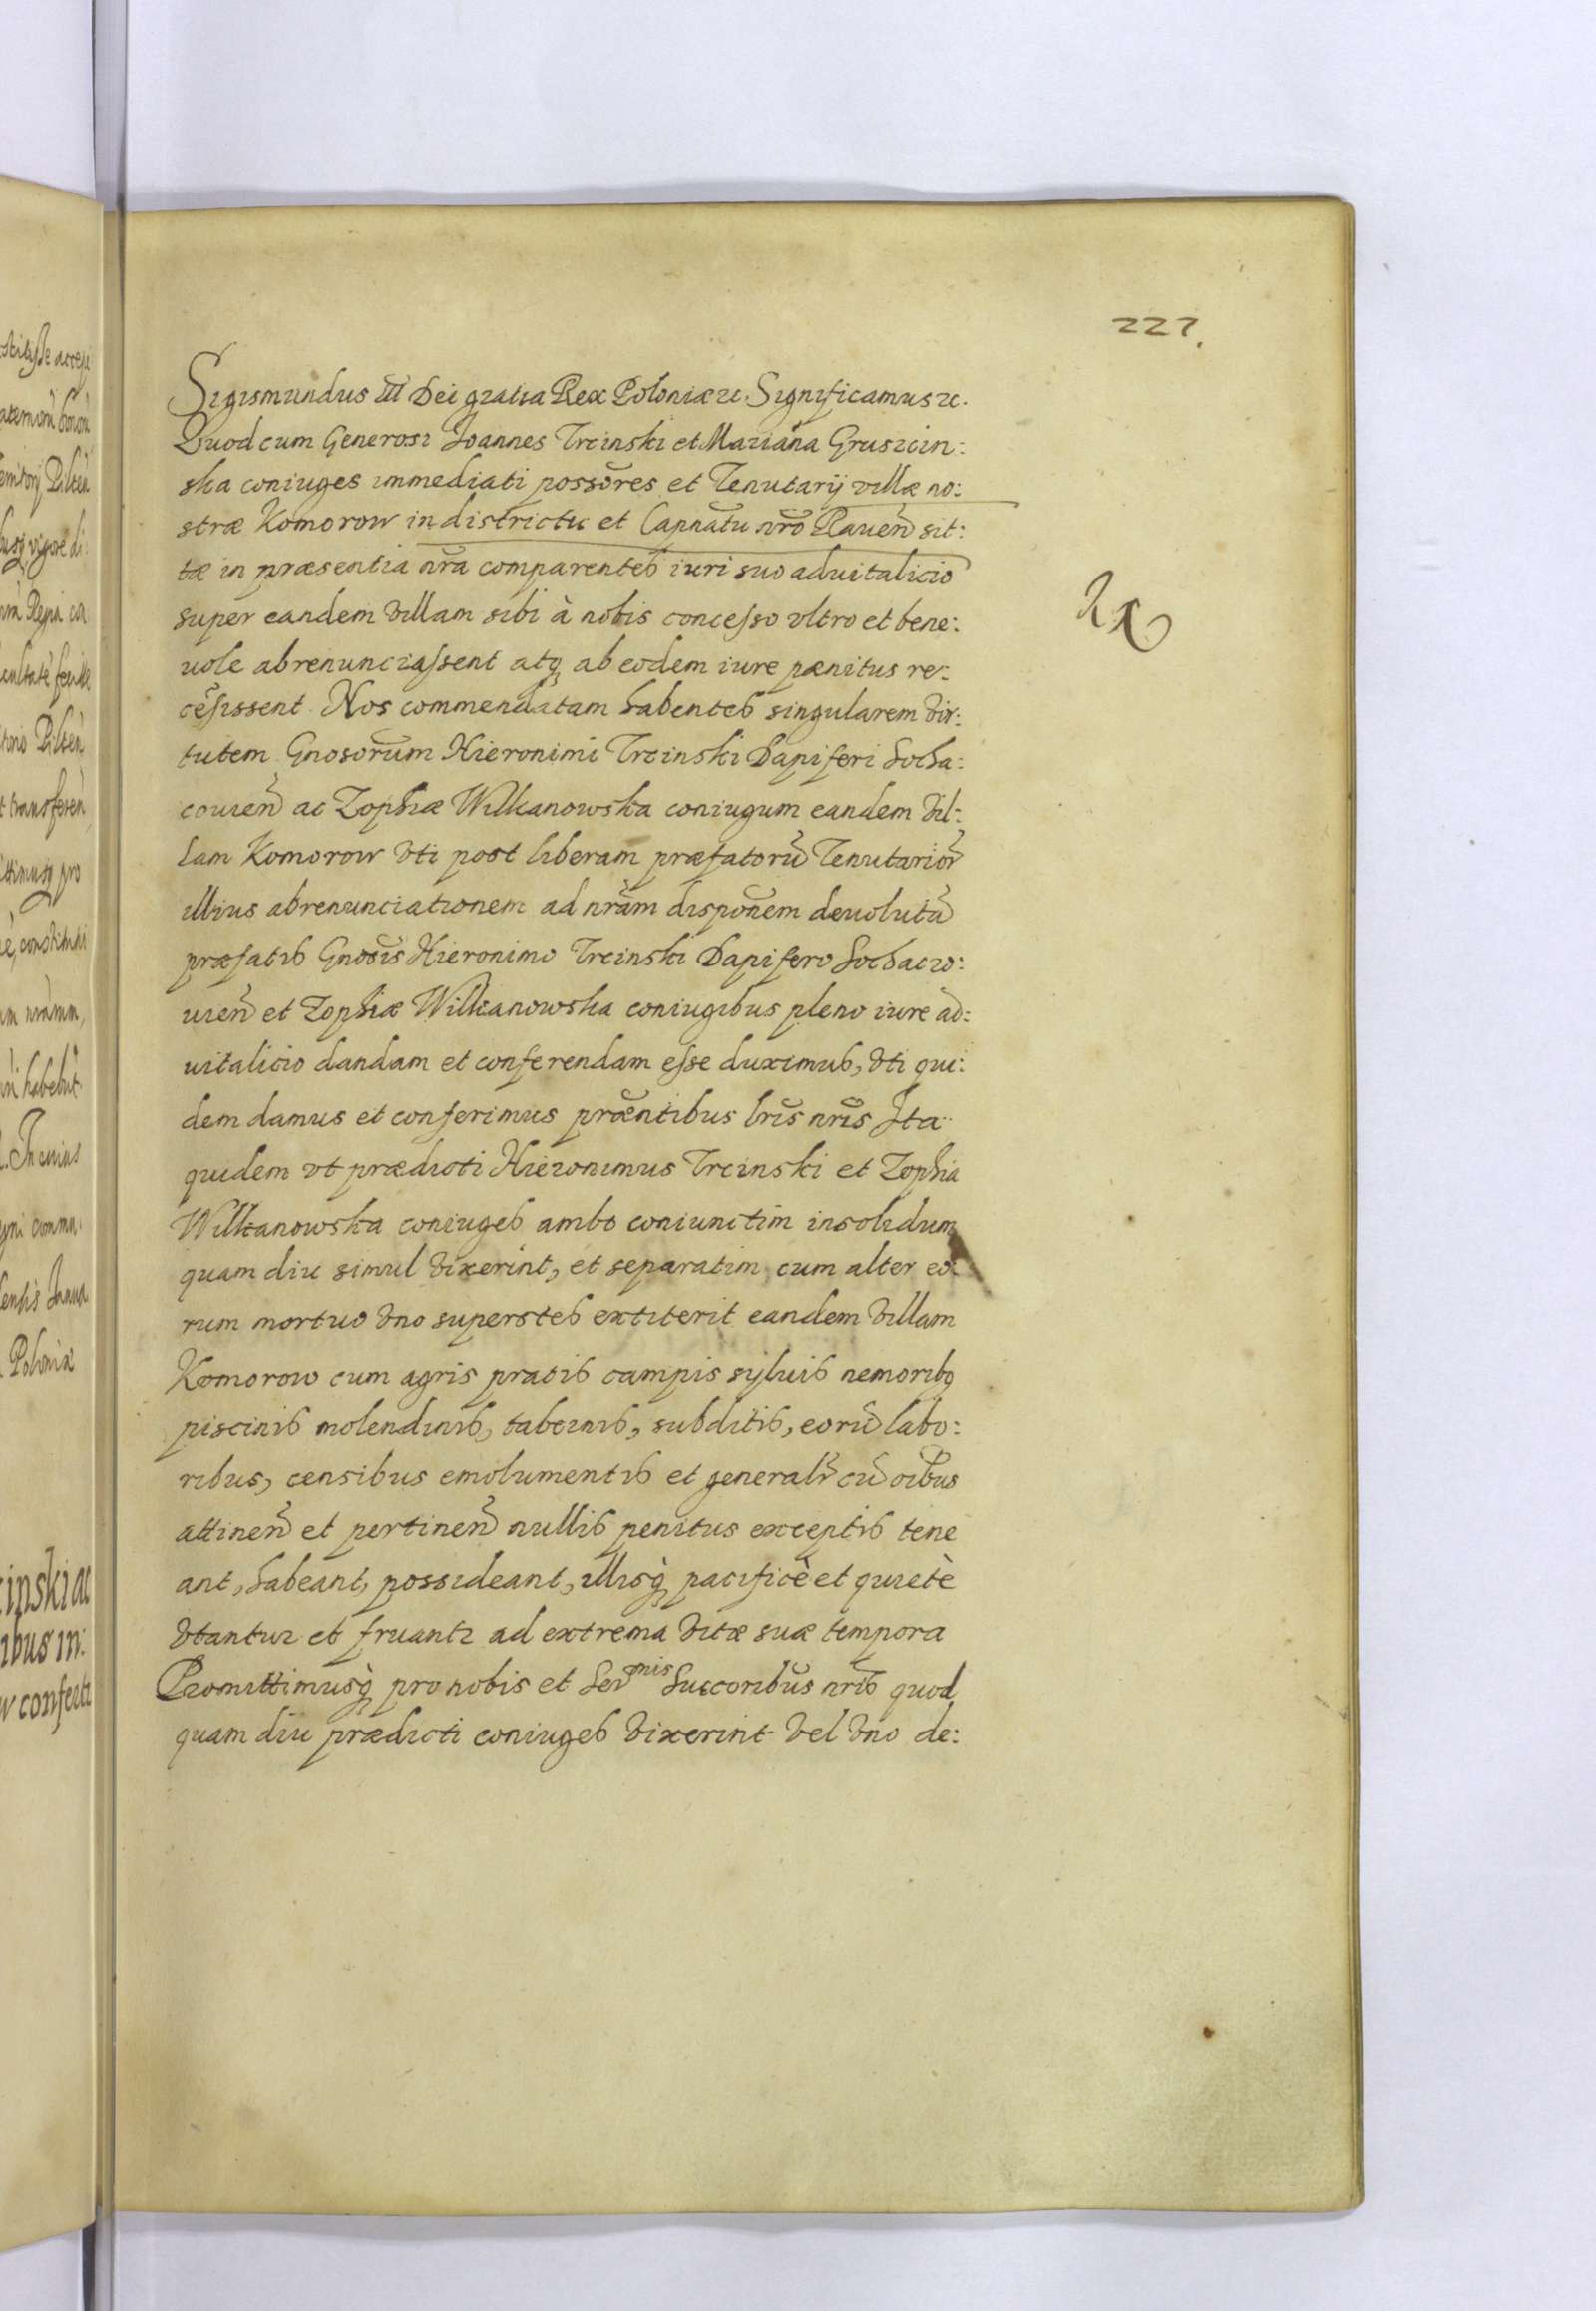 227.
Sigismundus III Dei gratia Rex Poloniæ &c. Significamus &c.
Quod cum Generosi Joannes Trcinski et Mariana Grusicin:
ska coniuges immediati possõres et Tenutarij villæ no:
stræ Komorow in districtu et Capnãtu nr̃o Rauen̄ sit:
tæ in præsentia nr̃a comparentes iuri suo aduitalicio
super eandem villam sibi à nobis concesso vltro et bene:
uole abrenunciassent atq3 ab eodem iure pænitus re:
cẽsissent. Nos commendatam habentes singularem vir:
tutem Gnosorũm Hieronimi Trcinski Dapiferi Socha:
couien̄ ac Zophiæ Wilkanowska coniugum eandem vil:
lam Komorow vti post liberam præfatorũ Tenutarior̃
illius abrenunciationem ad nr̃am disponẽm deuolutã
præfatis Gnosĩs Hieronimo Trcinski Dapifero Sochaczo:
uien̄ et Zophiæ Wilkanowska coniugibus pleno iure ad:
uitalicio dandam et conferendam esse duximus, vti qui:
dem damus et conferimus præ̃ntibus lr̃is nr̃is Ita
quidem vt prædicti Hieronimus Trcinski et Zophia
Wilkanowska coniuges ambo coniunctim insolidum
quam diu simul vixerint, et separatim cum alter eo:
rum mortuo vno superstes extiterit eandem villam
Komorow cum agris pratis campis syluis nemoribq3
piscinis molendinis, tabernis, subditis, eorũ labo:
ribus, censibus emolumentis et generalr̃ cũ oĩbus
attinen̄ et pertinen̄ nullis penitus exceptis tene
ant, habeant, possideant, illisq3 pacificè et quietè
vtantur et fruantr ad extrema vitæ suæ tempora
Promittimusq3 pro nobis et Ser̃mis Succoribũs nr̃is quod
quam diu prædicti coniuges vixerint vel vno de: